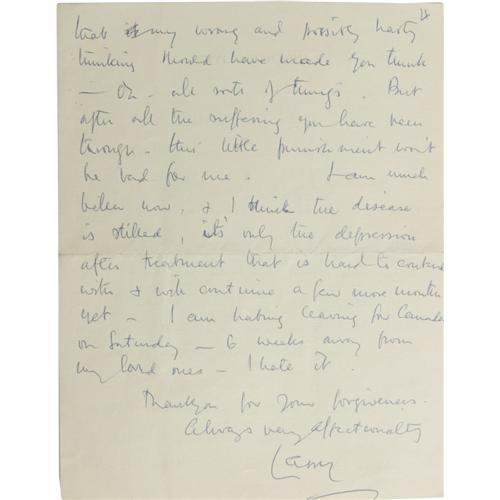 that my wrong and possibly hasty
thinking should have made you think
— Oh - all sorts of things. But
after all the suffering you have been
through - this little punishment won't
be bad for me. I am much
better now, & I think the disease
is stilled, it's only the depression
after treatment that is hard to contend
with & will continue a few more months
yet — I am hating leaving for Canada
on Saturday — 6 weeks away from
my loved ones — I hate it.
Thankyou for your forgiveness.
Always very affectionately
Larry